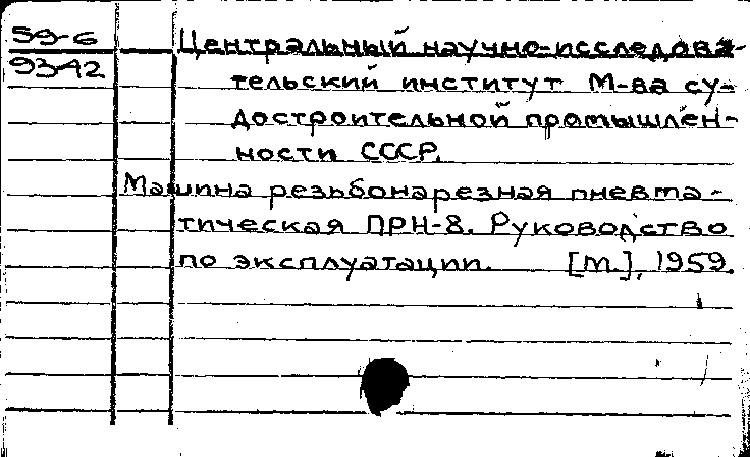 59-6
9342
Центральный научно-исследова-
тельский институт М-ва су-
достроительной промышлен-
ности СССР.
Машина резьбонарезная пневма-
тическая ПРН-8. Руководство
по эксплуатации. [М.], 1959.